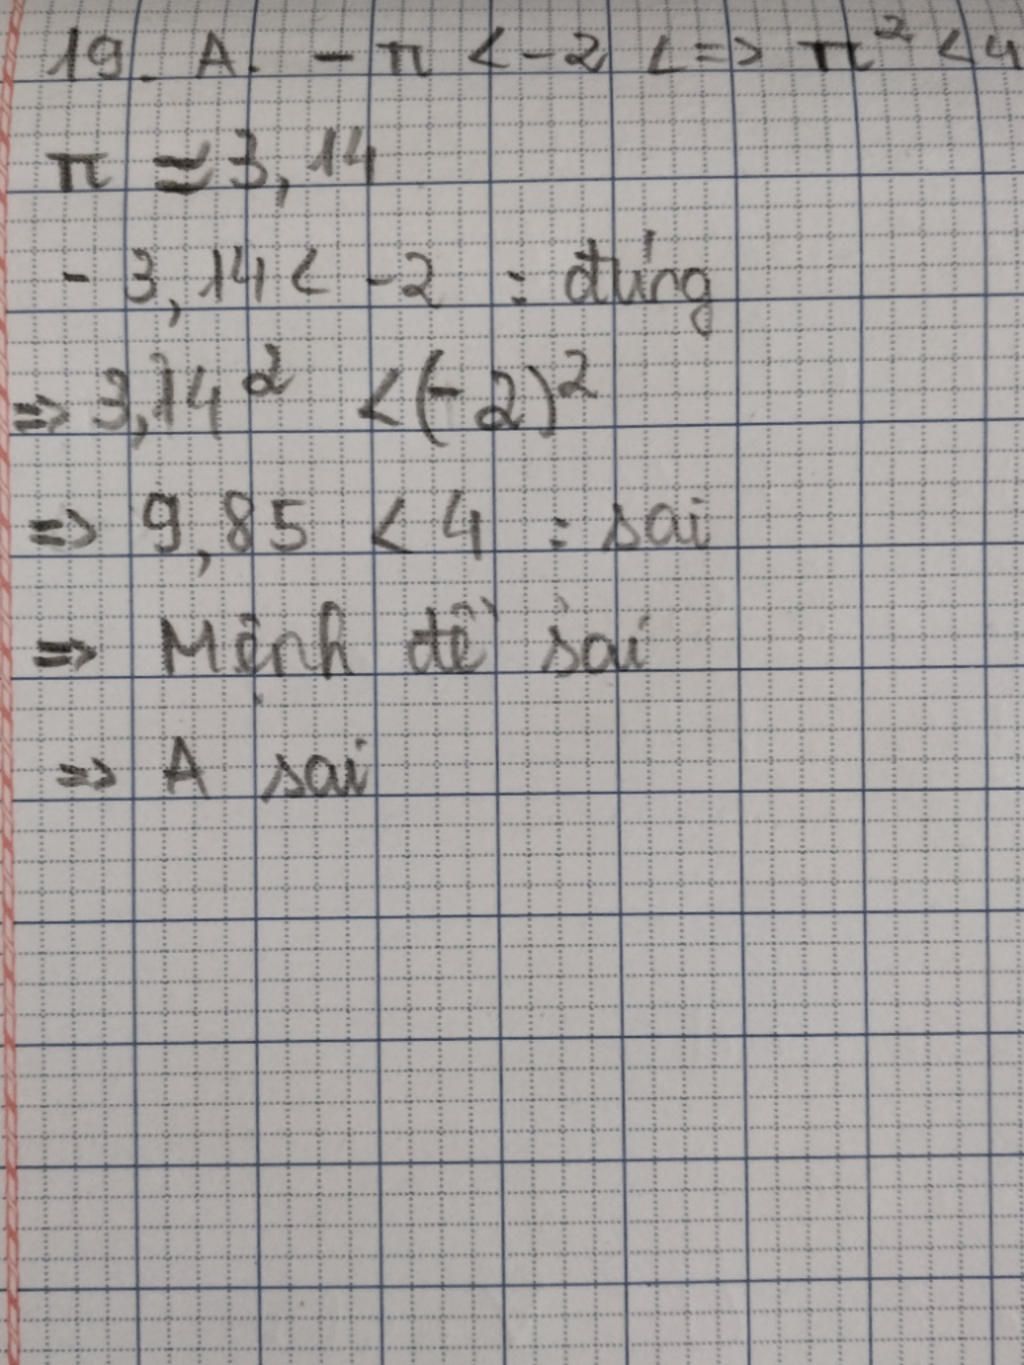 19. A. - π < -2 <=> π² < 4
π ≈ 3,14
- 3,14 < -2 : đúng
=> 3,14² < (-2)²
=> 9,85 < 4 : sai
=> Mệnh đề sai
=> A sai